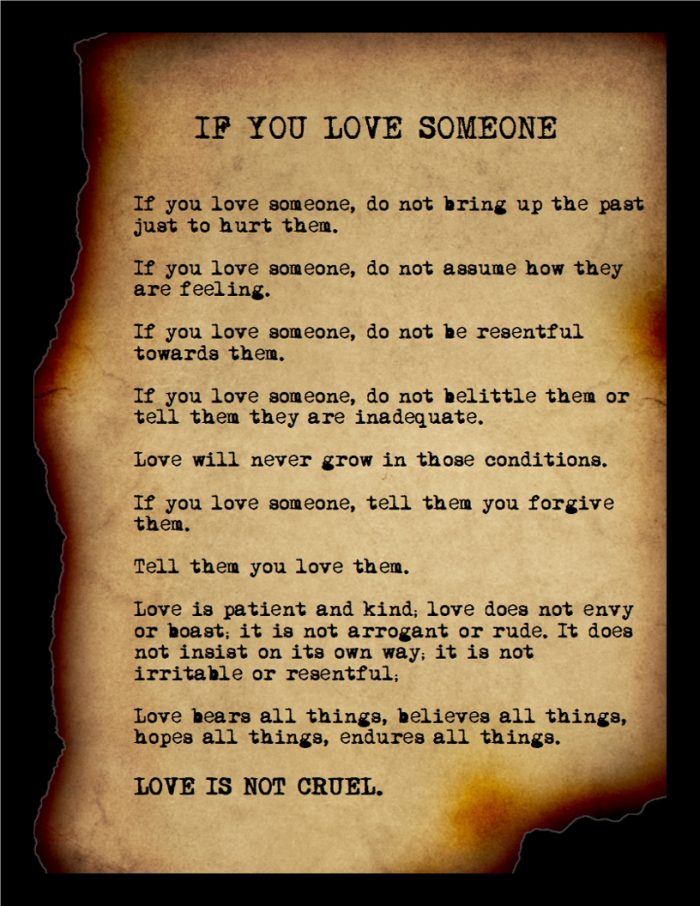 IF YOU LOVE SOMEONE
If you love someone, do not bring up the past
just to hurt them.
If you love someone, do not assume how they
are feeling.
If you love someone, do not be resentful
towards them.
If you love someone, do not belittle them or
tell them they are inadequate.
Love will never grow in those conditions.
If you love someone, tell them you forgive
them.
Tell them you love them.
Love is patient and kind; love does not envy
or boast; it is not arrogant or rude. It does
not insist on its own way; it is not
irritable or resentful;
Love bears all things, believes all things,
hopes all things, endures all things.
LOVE IS NOT CRUEL.